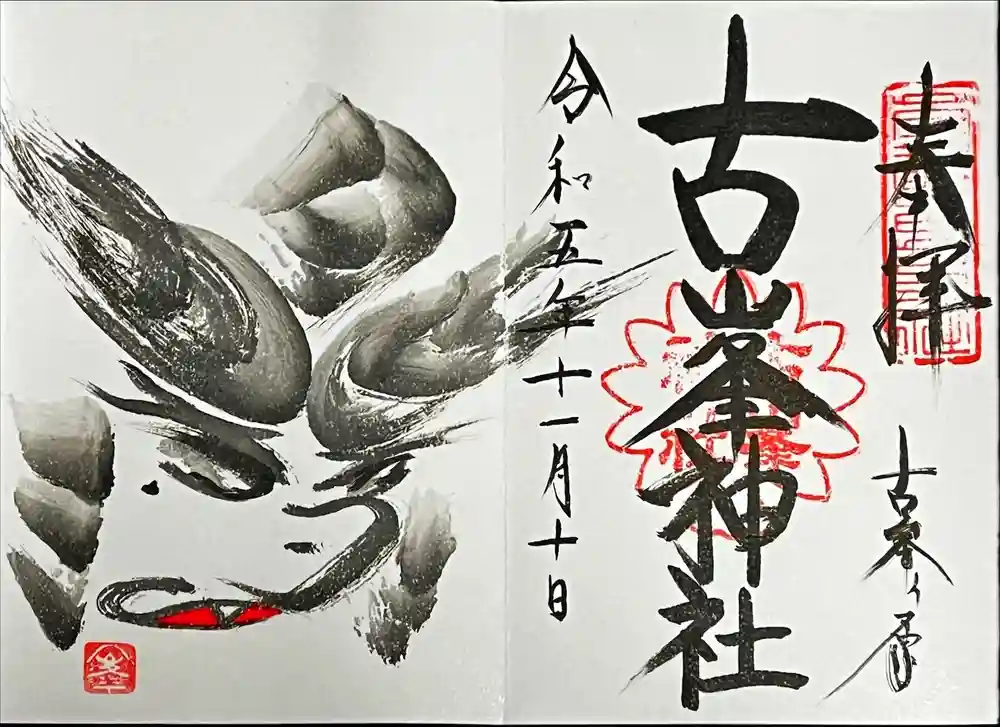 奉拝
古峯ヶ原
古峯神社
令和五年十一月十日